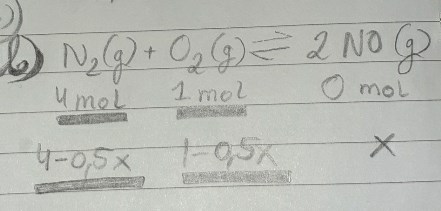 b) N₂(g) + O₂(g) ⇌ 2 NO (g)
4 mol 1 mol 0 mol
4-0,5x 1-0,5x x